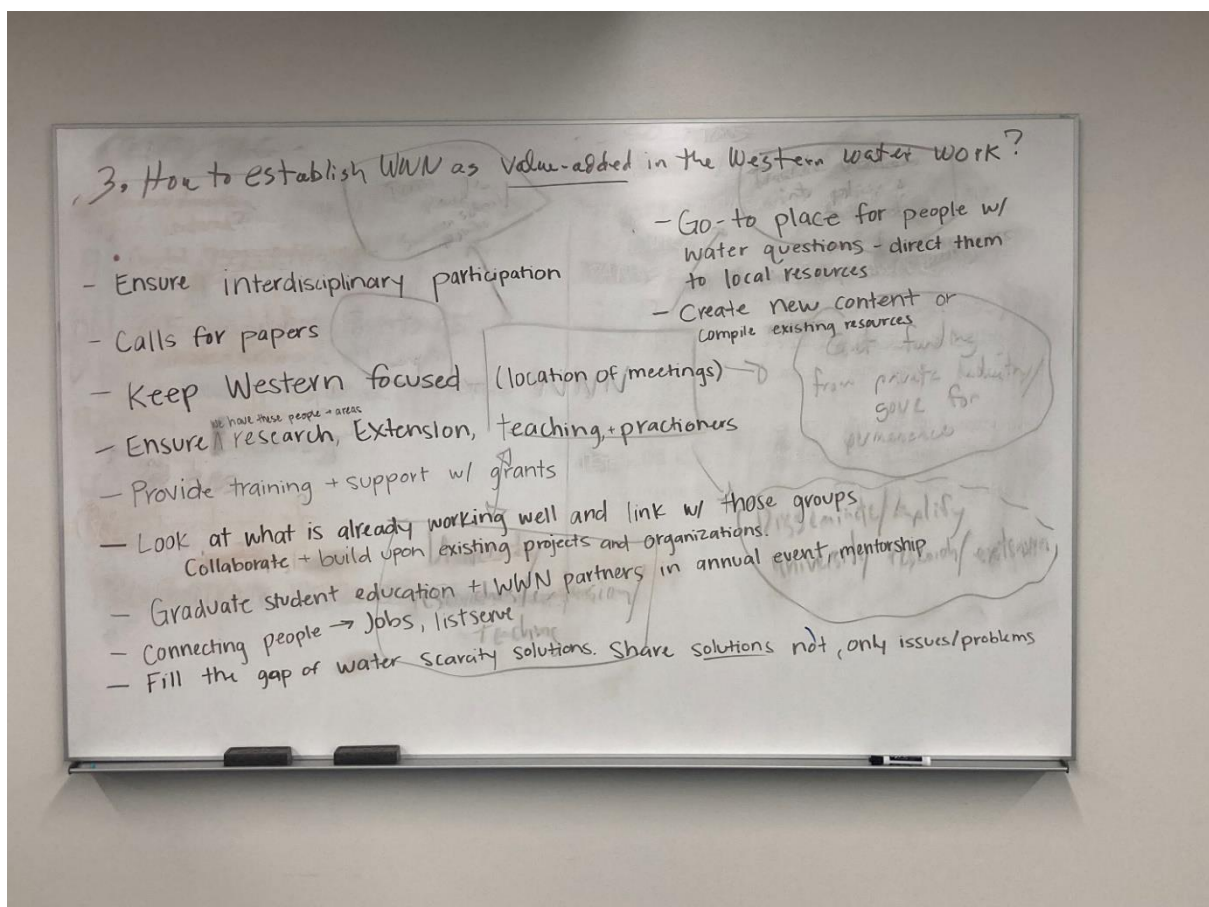 3. How to establish WWN as value-added in the Western water work?
- Ensure interdisciplinary participation
- Calls for papers
- Keep Western focused (location of meetings)
we have these people + areas
- Ensure ^ research, Extension, teaching, + practioners
- Provide training + support w/ grants
- Look at what is already working well and link w/ those groups.
Collaborate + build upon existing projects and organizations.
- Graduate student education + WWN partners in annual event, mentorship
- Connecting people → Jobs, listserve
- Fill the gap of water scarcity solutions. Share solutions not, only issues/problems
- Go-to place for people w/
water questions - direct them
to local resources
- Create new content or
compile existing resources
funding
from private industry/
for
Disseminate/Amplify
teaching